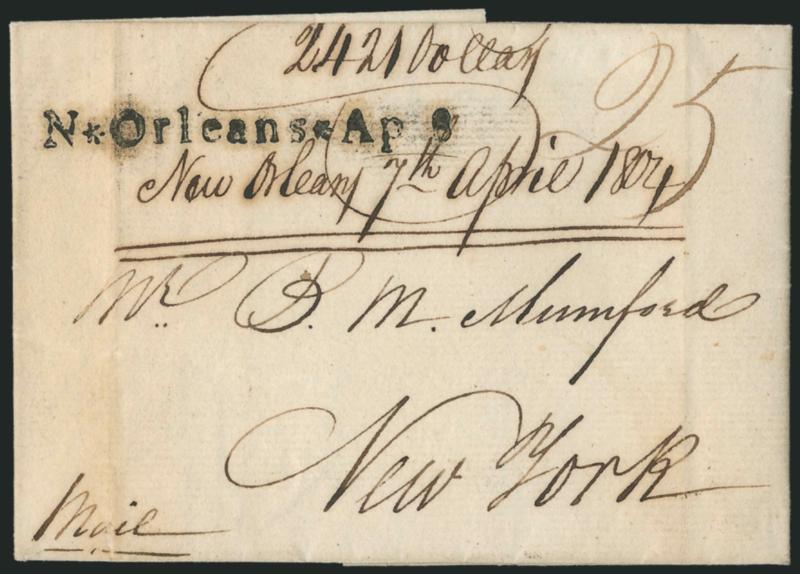 2421 Dollars
25
N*Orleans*Ap 8
New Orleans 7th April 1804
Mr. B. M. Mumford
New York
Mail